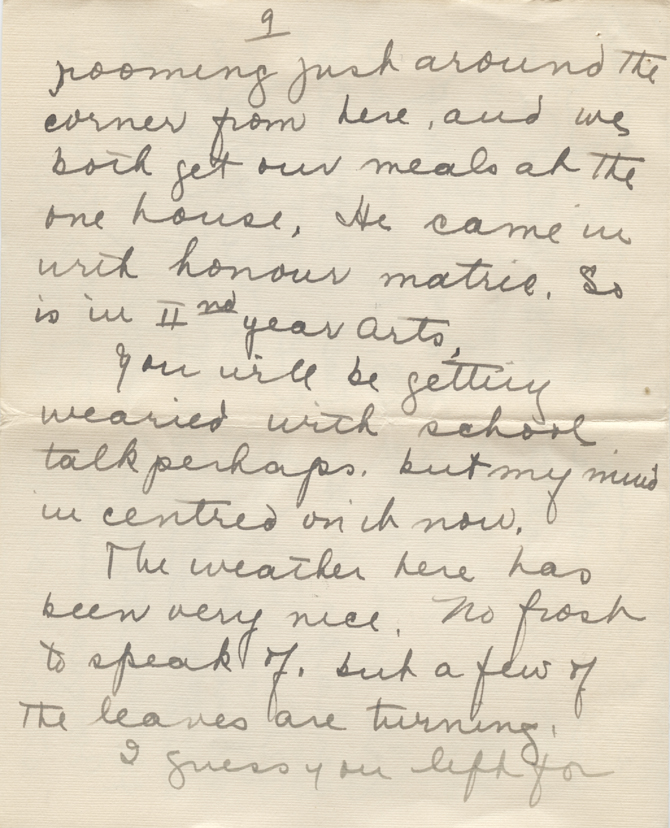 9
rooming just around the
corner from here, and we
both get our meals at the
one house. He came in
with honour matric. So
is in IInd year Arts.
You will be getting
wearied with school
talk perhaps. but my mind
in centred on it now.
The weather here has
been very nice. No frost
to speak of. but a few of
the leaves are turning.
I guess you left for